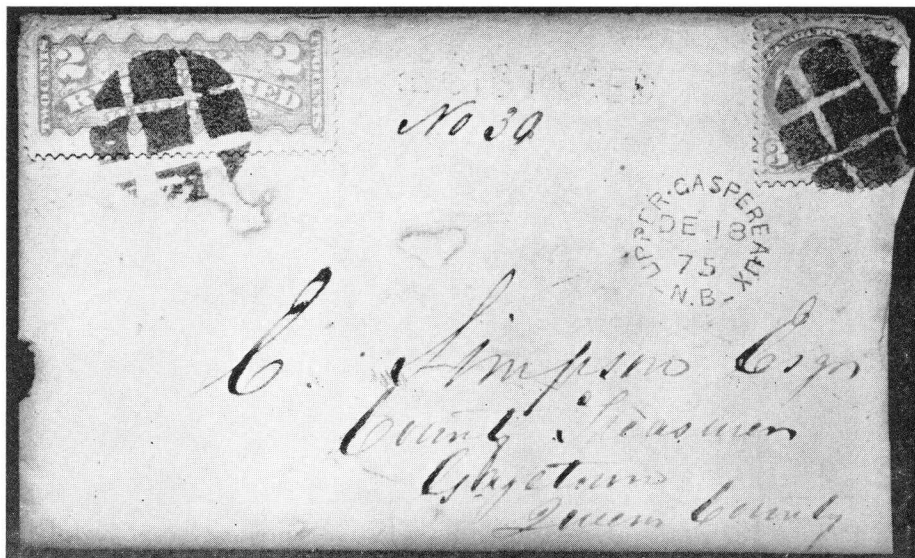 2 REGISTERED 2
TWO CENTS
CENTS
REGISTERED
No 39
UPPER·GASPEREAUX
DE 18
75
N.B
C. Simpson Esqr
County Treasurer
Gagetown
Queens County